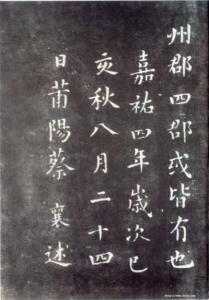 州郡四郡或皆有也
嘉祐四年歲次己
亥秋八月二十四
日莆陽蔡襄述